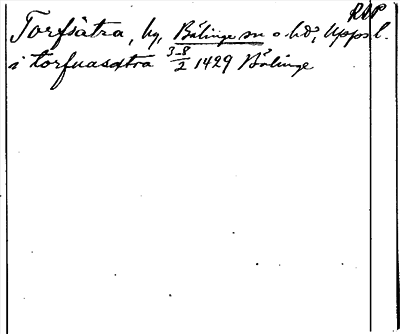 RAP
Torfsätra, by, Bälinge sn o. hd, Upps l.
i torfuasætra 3-8/2 1429 Bälinge